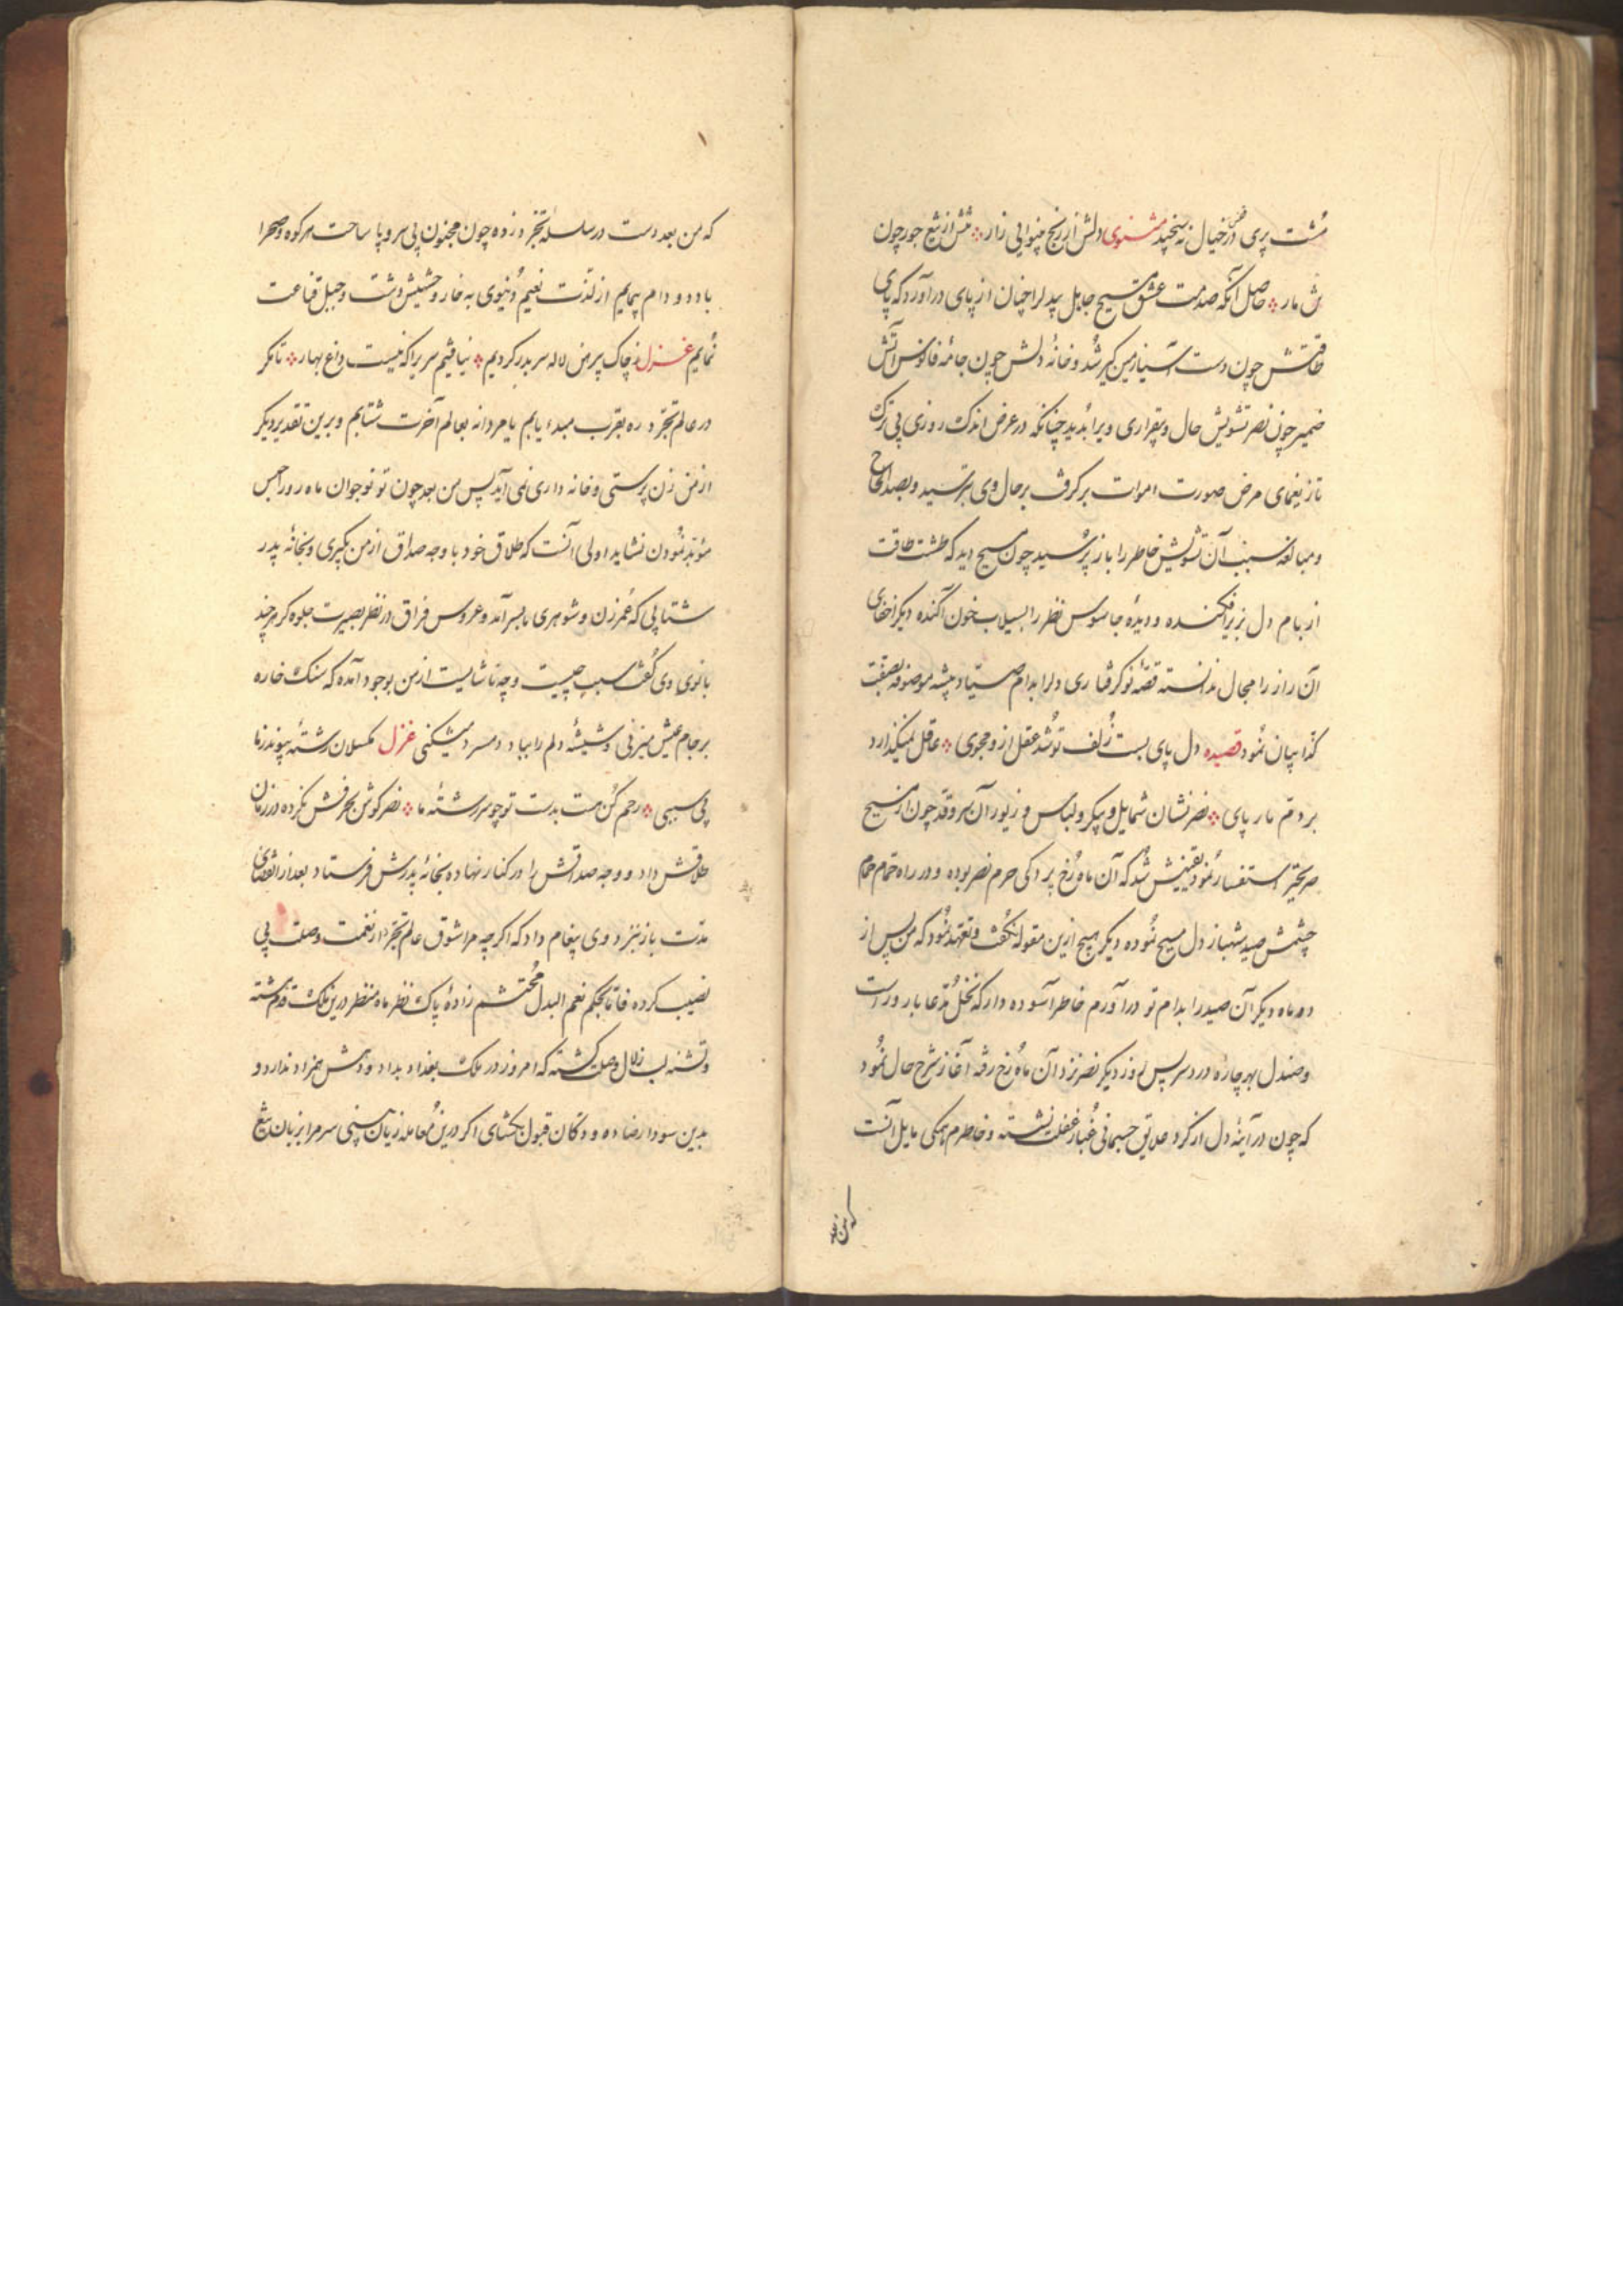 مشت پری در قفس خیال نه سنجید مثنوی دلش از رنج بینوایی زار تنش از تیغ جور چون
حاصل آنکه صدمت عشق مسیح جابل بیدل را چنان از پای درآورد که پای
طاقتش چون دست آسیا زمین گیر شد و خانهٔ دلش چون جامهٔ فانوس آتش
ضمیر چون نصر تشویش حال و بیقراری ویرا بدید چنانکه در عرض اندک روزی بی ترک
تاز یغمای مرض صورت اموات برگرفت بر حال وی بترسید و بصد الحاح
و مبالغه سبب آن تشویش خاطر را باز پرسید چون مسیح دید که طشت طاقت
از بام دل بزیر افکنده و دیدهٔ جاسوس نظر را بسیلاب خون آکنده دیگر اخفای
آن راز را مجال ندانسته قصهٔ نو گرفتاری دلرا بدام صیاد پیشه موصوفه بصفت
کذا بیان نمود قصیده دل پای بست زلف تو شد عقل ازو مجوی عاقل نمیگذارد
بر دم مار پای نصر نشان شمایل و پیکر و لباس و زیور آن سرو قد چون از مسیح
استفسار نمود یقینش شد که آن ماه رخ پردگی حرم نصر بوده و در راه حمام
چشمش صید شهباز دل مسیح نموده دیگر هیچ ازین مقوله نگفت و تعهد نمود که من پس از
دو ماه دیگر آن صید را بدام تو درآورم خاطر آسوده دار که نخل مدعا بارورست
و صندل بهر چارهٔ درد سر پس روز دیگر نصر نزد آن ماه رخ رفته آغاز شرح حال نمود
که چون در آینهٔ دل از گرد علایق جسمانی غبار غفلت نشسته و خاطرم همگی مایل آنست
که من بعد
که من بعد دست در سلسلهٔ تجرد زده چون مجنون بی سر و پا ساحت هر کوه و صحرا
با دد و دام پیمایم از لذت نعیم دنیوی به خار و حشیش دشت و جبل قناعت
نمایم غزل ز چاک پیرهن لاله سر بدر کردیم نیافتیم سریرا که نیست داغ بهار تا مگر
در عالم تجرد ره بقرب مبدء یابم یا مردانه بعالم آخرت شتابم و برین تقدیر دیگر
از من زن پرستی و خانه داری نمی آید پس من بعد چون تو نوجوان ماه رو را حبس
مؤبد نمودن نشاید اولی آنست که طلاق خود با وجه صداق از من بگیری و بخانهٔ پدر
شتابی که عمر زن و شوهری ما بسر آمد و عروس فراق در نظر بصیرت جلوه گر هر چند
بانوی وی گفت سبب چیست و چه ناشایست از من بوجود آمده که سنگ خاره
بر جام عیش میزنی و شیشهٔ دلم را بباد دم سرد میشکنی غزل مگسلان رشتهٔ پیوند زما
بی سببی رحم کن هست بدست تو چو سررشتهٔ ما نصر گوش بحرفش نکرده در زمان
طلاقش داد و وجه صداقش را در کنار نهاده بخانهٔ پدرش فرستاد بعد از انقضای
مدت باز بنزد وی پیغام داد که اگرچه مرا شوق عالم تجرد از نعمت وصلت بی
نصیب کرده فاما بحکم نعم البدل محتشم زادهٔ پاک نظر ماه منظر درین ملک قدم گشته
و تشنه لب زلال وصلت گشته که امروز در ملک بغداد بداد و دهش همزاد ندارد و
بدین سودا رضا ده و دکان قبول بگشای اگر درین معامله زیان بینی سر مرا بزبان تیغ